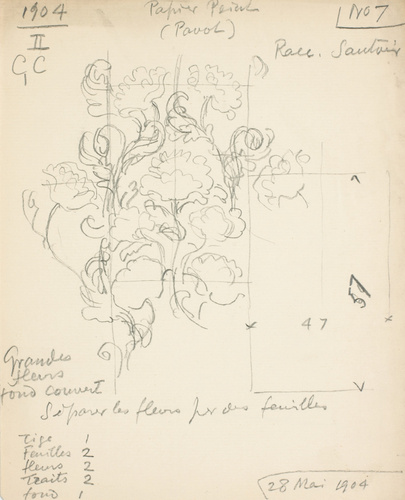 1904
II
GC
Papier Peint
(Pavot)
No 7
Racc. Sautoir
57
47
Grandes
fleurs
fond couvert
Séparer les fleurs par des feuilles
Tige 1
Feuilles 2
fleurs 2
Traits 2
fond 1
28 Mai 1904